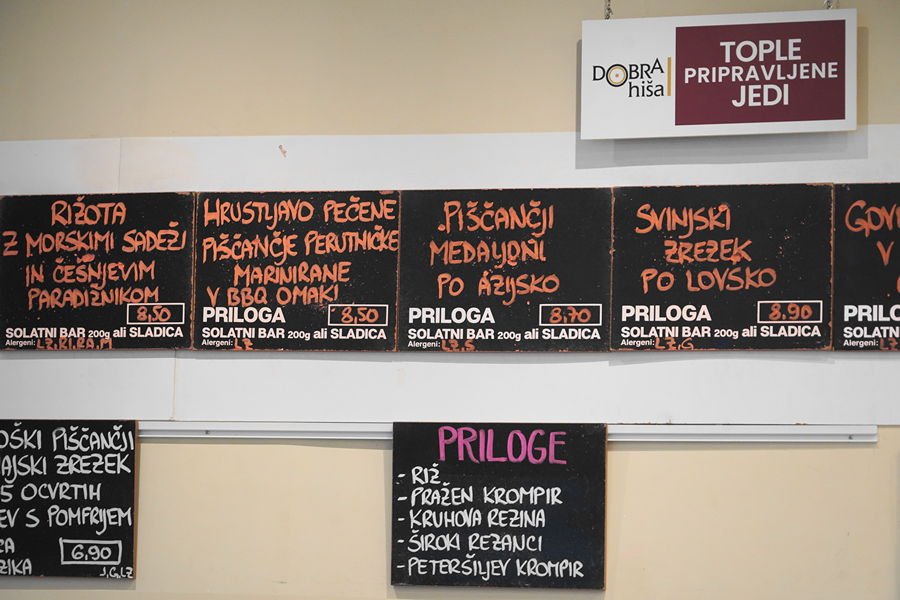 DOBRA
hiša
TOPLE
PRIPRAVLJENE
JEDI
RIŽOTA
Z MORSKIMI SADEŽI
IN ČEŠNJEVIM
PARADIŽNIKOM
8,50
SOLATNI BAR 200g ali SLADICA
Alergeni: LZ, RI, RA, M
HRUSTLJAVO PEČENE
PIŠČANČJE PERUTNIČKE
MARINIRANE
V BBQ OMAKI
PRILOGA 8,50
SOLATNI BAR 200g ali SLADICA
Alergeni: LZ
PIŠČANČJI
MEDALJONI
PO AZIJSKO
PRILOGA 8,70
SOLATNI BAR 200g ali SLADICA
Alergeni: LZ, S
SVINJSKI
ZREZEK
PO LOVSKO
PRILOGA 8,90
SOLATNI BAR 200g ali SLADICA
Alergeni: LZ, G
V
SOLATNI
Alergeni: LZ
OŠKI PIŠČANČJI
AJSKI ZREZEK
5 OCVRTIH
EV S POMFRIJEM
6,90
J, G, LZ
PRILOGE
- RIŽ
- PRAŽEN KROMPIR
- KRUHOVA REZINA
- ŠIROKI REZANCI
- PETERŠILJEV KROMPIR